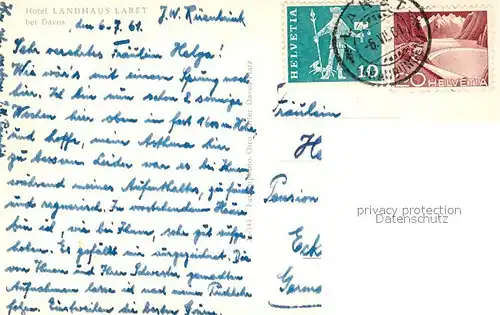 Hotel LANDHAUS LARET
bei Davos
den 6.7.61. J.W.
Sehr verehrtes Fräulein Helga!
Wie wär's mit einem Sprung nach
hier. Ich bin nun schon 2 sonnige
Wochen hier oben in fast 1600 m Höhe
und hoffe, mein Asthma hier
zu bessern. Leider war es bei Ihnen
während meines Aufenthaltes, zu feucht
und regnerisch. In vorstehendem Hause
bin ich, wie bei Ihnen, sehr gut aufge-
hoben. Es gefällt mir ausgezeichnet. Die
von Ihnen und Ihrer Schwester gemachten
Aufnahmen lasse ich nach meiner Rückkehr
folgen. Einstweilen die besten Grüsse
HELVETIA
10
HELVETIA
Fräulein
He
Pension
Eck
Germa
privacy protection
Datenschutz